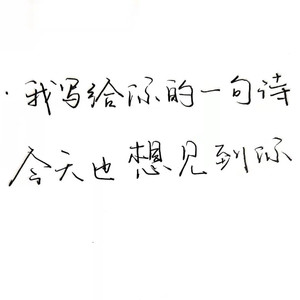 ·我写给你的一句诗
今天也想见到你